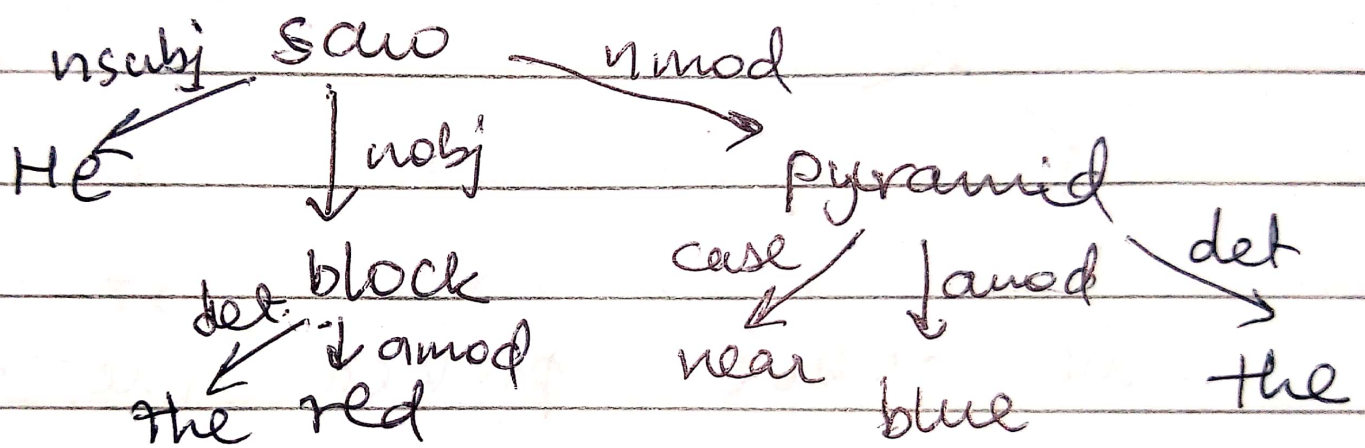 nsubj saw nmod
He nobj pyramid
block case amod det
det amod near the
the red blue